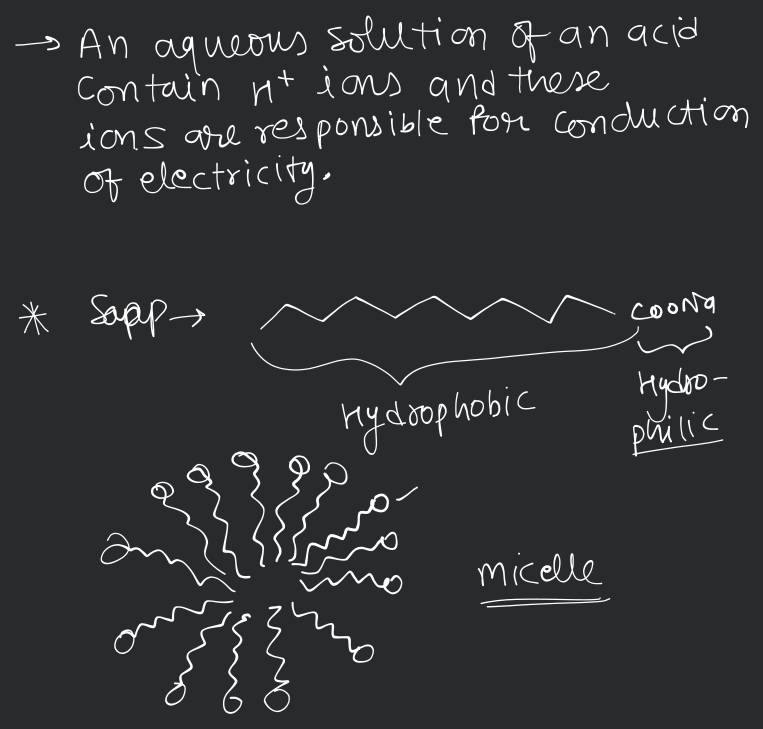 → An aqueous solution of an acid
contain H+ ions and these
ions are responsible for conduction
of electricity.
* Soap → COONa
Hydrophobic
Hydro-
philic
micelle